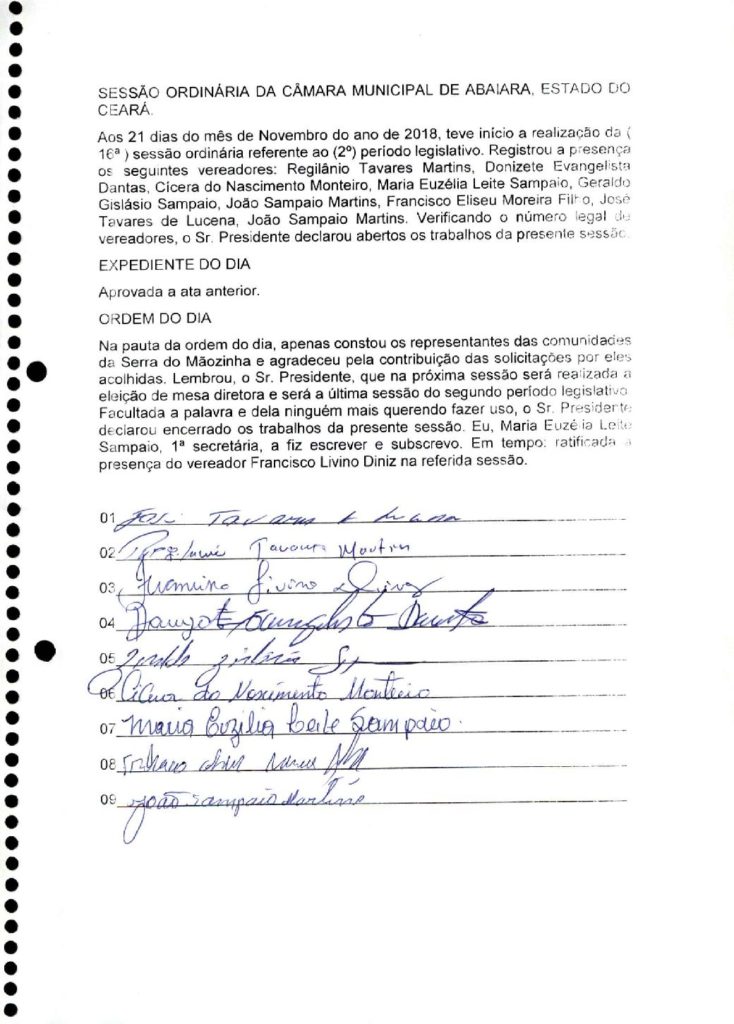 SESSÃO ORDINÁRIA DA CÂMARA MUNICIPAL DE ABAIARA, ESTADO DO
CEARÁ.
Aos 21 dias do mês de Novembro do ano de 2018, teve início a realização da (
16ª ) sessão ordinária referente ao (2º) período legislativo. Registrou a presença
os seguintes vereadores: Regilânio Tavares Martins, Donizete Evangelista
Dantas, Cícera do Nascimento Monteiro, Maria Euzélia Leite Sampaio, Geraldo
Gislásio Sampaio, João Sampaio Martins, Francisco Eliseu Moreira Filho, José
Tavares de Lucena, João Sampaio Martins. Verificando o número legal de
vereadores, o Sr. Presidente declarou abertos os trabalhos da presente sessão.
EXPEDIENTE DO DIA
Aprovada a ata anterior.
ORDEM DO DIA
Na pauta da ordem do dia, apenas constou os representantes das comunidades
da Serra do Mãozinha e agradeceu pela contribuição das solicitações por eles
acolhidas. Lembrou, o Sr. Presidente, que na próxima sessão será realizada a
eleição de mesa diretora e será a última sessão do segundo período legislativo.
Facultada a palavra e dela ninguém mais querendo fazer uso, o Sr. Presidente
declarou encerrado os trabalhos da presente sessão. Eu, Maria Euzélia Leite
Sampaio, 1ª secretária, a fiz escrever e subscrevo. Em tempo: ratificada a
presença do vereador Francisco Livino Diniz na referida sessão.
01 José Tavares
02 Tavares Martins
03 Livino
04
05
06 Cícera do Nascimento Monteiro
07 Maria Euzilia Leite Sampaio.
08
09 João Sampaio Martins